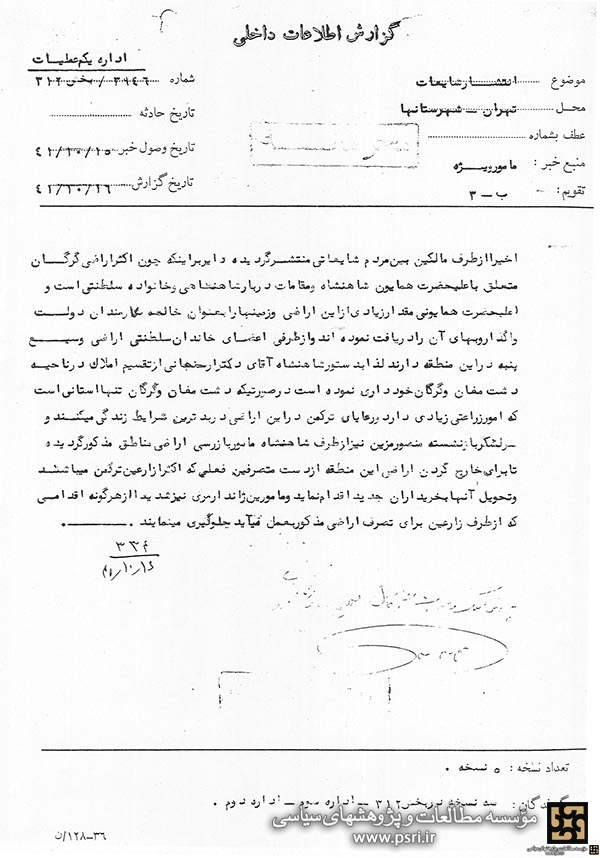 گزارش اطلاعات داخلی
اداره یکم عملیات
موضوع انتشار شایعات
شماره ۳۱۲ بخش / ۳۹۴۶
محل تهران - شهرستانها
تاریخ حادثه
عطف بشماره
تاریخ وصول خبر ۴۱/۱۰/۱۵
منبع خبر : مامور ویژه
تاریخ گزارش ۴۱/۱۰/۱۶
تقویم : ب - ۳
اخیرا از طرف مالکین بین مردم شایعاتی منتشر گردیده دایر براینکه چون اکثر اراضی گرگان
متعلق باعلیحضرت همایون شاهنشاه ومقامات دربارشاهنشاهی وخانواده سلطنتی است و
اعلیحضرت همایونی مقدار زیادی از این اراضی وزمینها را بعنوان خالصه بکارمندان دولت
واگذار وبهای آن را دریافت نموده اند واز طرفی اعضای خاندان سلطنتی اراضی وسیع
پنبه در این منطقه دارند لذا بدستور شاهنشاه آقای دکتر ارسنجانی از تقسیم املاک در ناحیه
دشت مغان وگرگان خود داری نموده است در صورتیکه دشت مغان وگرگان تنها استانی است
که امور زراعتی زیادی دارد ورعایای ترکمن در این اراضی در بد ترین شرایط زندگی میکنند و
سرلشکر بازنشسته منصور مزین نیز از طرف شاهنشاه مامور بازرسی اراضی مناطق مذکور گردیده
تا برای خارج کردن اراضی این منطقه از دست متصرفین فعلی که اکثرا زارعین ترکمن میباشند
وتحویل آنها بخریداران جدید اقدام نماید ومامورین ژاندارمری نیز شدیدا از هرگونه اقدامی
که از طرف زارعین برای تصرف اراضی مذکور بعمل میآید جلوگیری مینمایند .
۳۳۴
۴۱/۱۰/۱۶
تعداد نسخه : ۵ نسخه .
گیرندگان : سه نسخه نزد بخش ۳۱۲ - اداره سوم - اداره دوم .
۳۶-۱۲۸/ن
موسسه مطالعات و پژوهشهای سیاسی
www.psri.ir